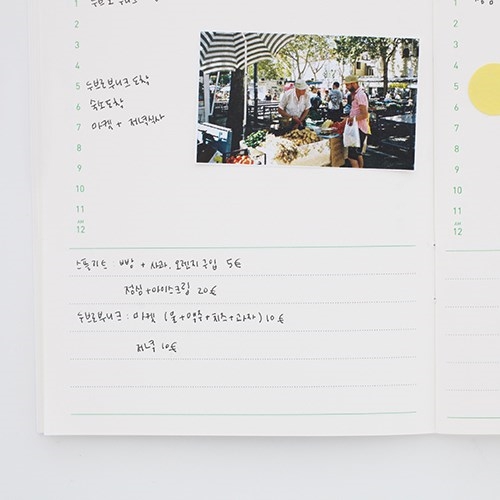 1
2
3
4
5 두브로브니크 도착
6 숙소도착
7 마켓 + 저녁식사
8
9
10
11
AM
12
스플리트 : 빵 + 사과, 오렌지 구입 5€
점심+아이스크림 20€
두브로브니크 : 마켓 (물+맥주+치즈+과자) 10€
저녁 10€
1
2
3
4
5
6
7
8
9
10
11
AM
12